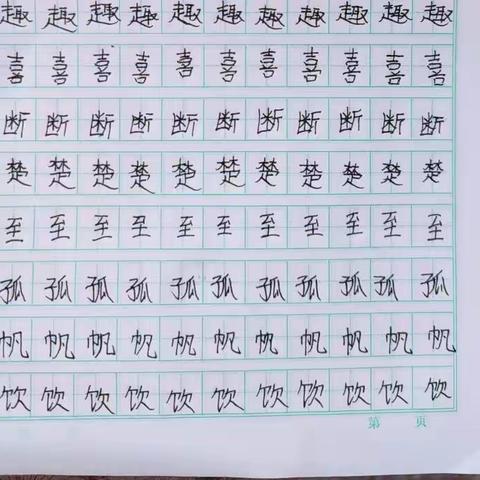 趣趣趣趣趣趣趣趣趣趣趣
喜喜喜喜喜喜喜喜喜喜喜
断断断断断断断断断断断
楚楚楚楚楚楚楚楚楚楚楚
至至至至至至至至至至至
孤孤孤孤孤孤孤孤孤孤孤
帆帆帆帆帆帆帆帆帆帆帆
饮饮饮饮饮饮饮饮饮饮饮
第 页